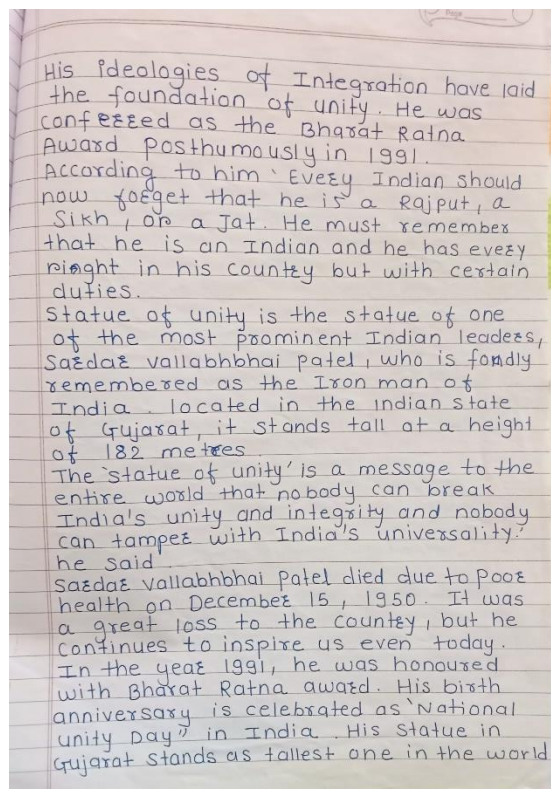 His ideologies of Integration have laid
the foundation of unity. He was
conferred as the Bharat Ratna
Award posthumously in 1991.
According to him 'Every Indian should
now forget that he is a Rajput, a
Sikh, or a Jat. He must remember
that he is an Indian and he has every
right in his country but with certain
duties.
Statue of unity is the statue of one
of the most prominent Indian leaders,
Sardar vallabhbhai patel, who is fondly
remembered as the Iron man of
India. located in the indian state
of Gujarat, it stands tall at a height
of 182 metres
The 'statue of unity' is a message to the
entire world that nobody can break
India's unity and integrity and nobody
can tamper with India's universality.'
he said.
Sardar vallabhbhai patel died due to poor
health on December 15, 1950. It was
a great loss to the country, but he
continues to inspire us even today.
In the year 1991, he was honoured
with Bharat Ratna award. His birth
anniversary is celebrated as 'National
unity Day" in India. His statue in
Gujarat stands as tallest one in the world